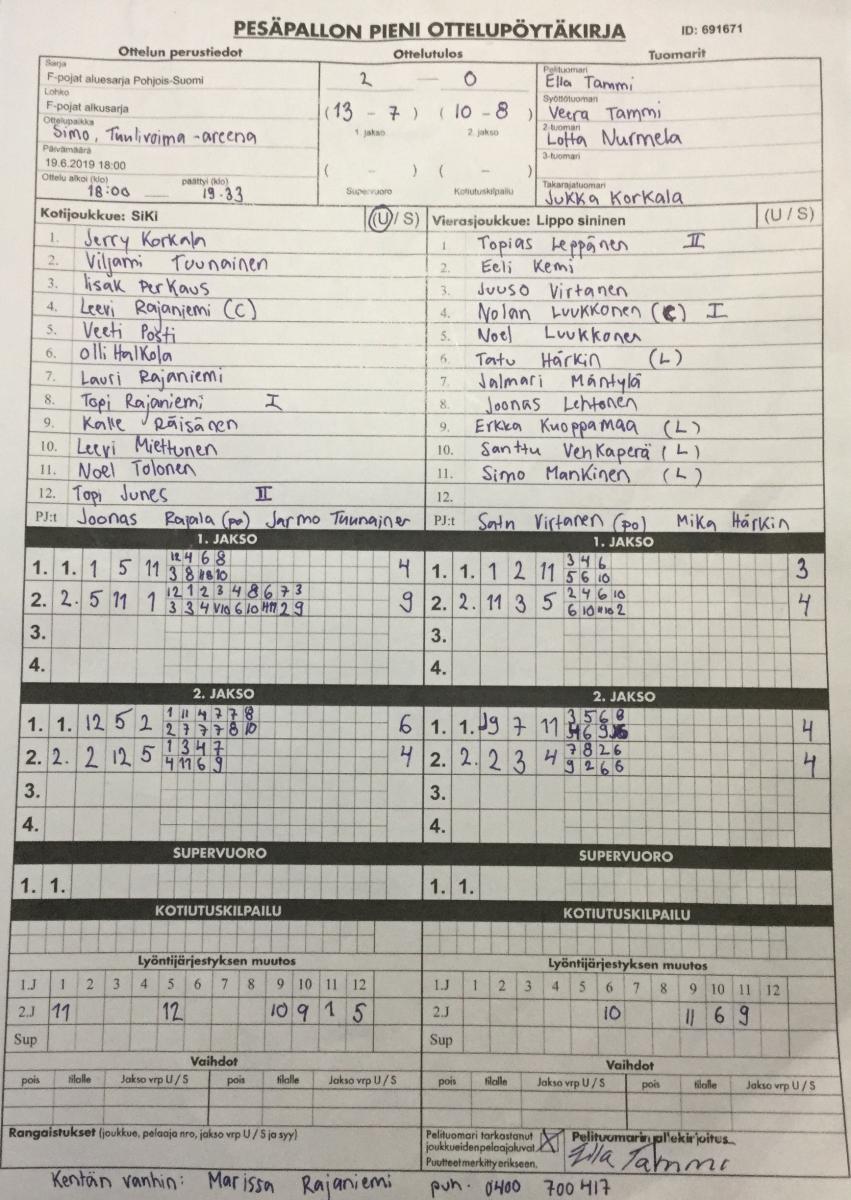 PESÄPALLON PIENI OTTELUPÖYTÄKIRJA ID: 691671
Ottelun perustiedot Ottelutulos Tuomarit
Sarja
F-pojat aluesarja Pohjois-Suomi
Lohko
F-pojat alkusarja
Ottelupaikka
Simo, Tuulivoima-areena
Päivämäärä
19.6.2019 18:00
Ottelu alkoi (klo) päättyi (klo)
18:00 19.33
2 — 0
(13 - 7) (10 - 8)
1. jakso 2. jakso
( - ) ( - )
Supervuoro Kotiutuskilpailu
Pelituomari
Ella Tammi
Syöttötuomari
Veera Tammi
2-tuomari
Lotta Nurmela
3-tuomari
Takarajatuomari
Jukka Korkala
Kotijoukkue: SiKi (U / S)
1. Jerry Korkala
2. Viljami Tuunainen
3. Iisak Perkaus
4. Leevi Rajaniemi (C)
5. Veeti Posti
6. Olli Halkola
7. Lauri Rajaniemi
8. Topi Rajaniemi I
9. Kalle Räisänen
10. Leevi Miettunen
11. Noel Tolonen
12. Topi Junes II
PJ:t Joonas Rajala (po) Jarmo Tuunainen
Vierasjoukkue: Lippo sininen (U / S)
1 Topias Leppänen II
2. Eeli Kemi
3. Juuso Virtanen
4. Nolan Luukkonen (C) I
5. Noel Luukkonen
6. Tatu Härkin (L)
7. Jalmari Mäntylä
8. Joonas Lehtonen
9. Erkka Kuoppamaa (L)
10. Santtu Vehkaperä (L)
11. Simo Mankinen (L)
12.
PJ:t Virtanen (po) Mika Härkin
1. JAKSO
1. 1. 1 5 11 12 4 6 8 4
3 8 10
2. 2. 5 11 1 12 1 2 3 4 8 6 7 3 9
3 3 4 6 10 2 9
3.
4.
1. JAKSO
1. 1. 1 2 11 3 4 6 3
5 6 10
2. 2. 11 3 5 2 4 6 10 4
6 10 2
3.
4.
2. JAKSO
1. 1. 12 5 2 1 11 4 7 7 8 6
2 7 7 7 8 10
2. 2. 2 12 5 1 3 4 7 4
4 11 6 9
3.
4.
2. JAKSO
1. 1. 9 7 11 3 5 6 8 4
6 9
2. 2. 2 3 4 7 8 2 6 4
9 2 6 6
3.
4.
SUPERVUORO SUPERVUORO
1. 1. 1. 1.
KOTIUTUSKILPAILU KOTIUTUSKILPAILU
Lyöntijärjestyksen muutos
1.J 1 2 3 4 5 6 7 8 9 10 11 12
2.J 11 12 10 9 1 5
Sup
Lyöntijärjestyksen muutos
1.J 1 2 3 4 5 6 7 8 9 10 11 12
2.J 10 11 6 9
Sup
Vaihdot Vaihdot
pois tilalle Jakso vrp U / S pois tilalle Jakso vrp U / S
pois tilalle Jakso vrp U / S pois tilalle Jakso vrp U / S
Rangaistukset (joukkue, pelaaja nro, jakso vrp U / S ja syy)
Pelituomari tarkastanut
joukkueiden pelaajaluvat
Puutteet merkitty erikseen.
X
Pelituomarin allekirjoitus
Ella Tammi
Kentän vanhin: Marissa Rajaniemi puh. 0400 700417